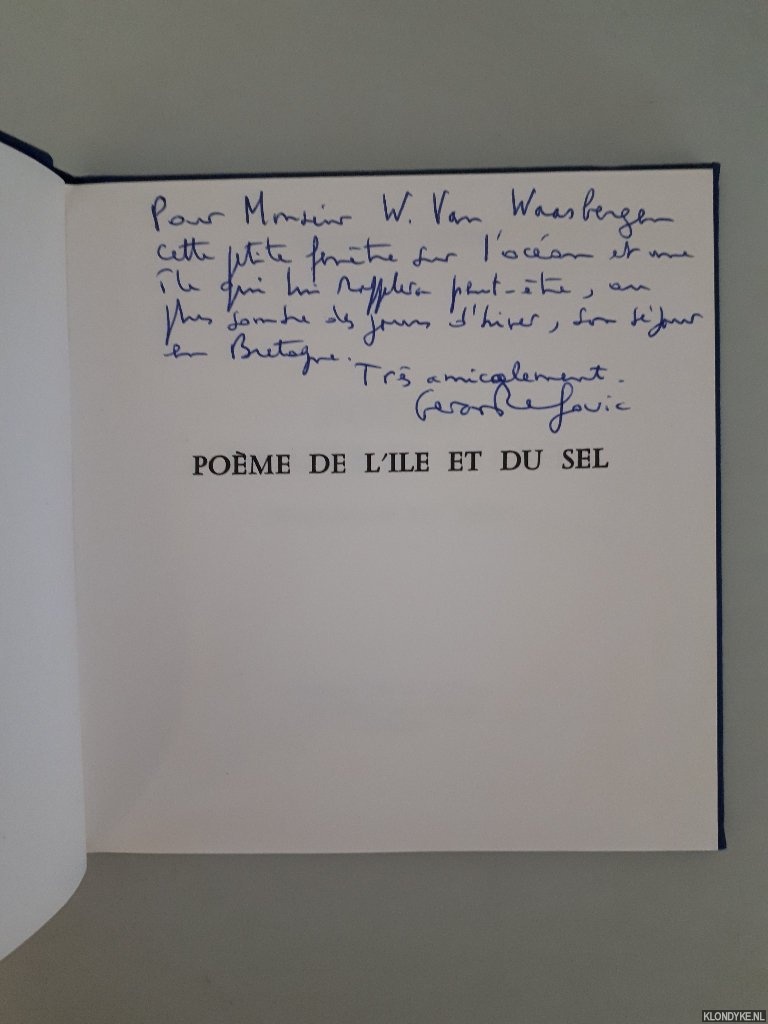 Pour Monsieur W. Van Waasbergen
cette petite fenêtre sur l'océan et une
île qui lui rappellera peut-être, au
plus sombre des jours d'hiver, son séjour
en Bretagne.
Très amicalement.
Gérard Le Gouic
POÈME DE L'ILE ET DU SEL
KLONDYKE.NL